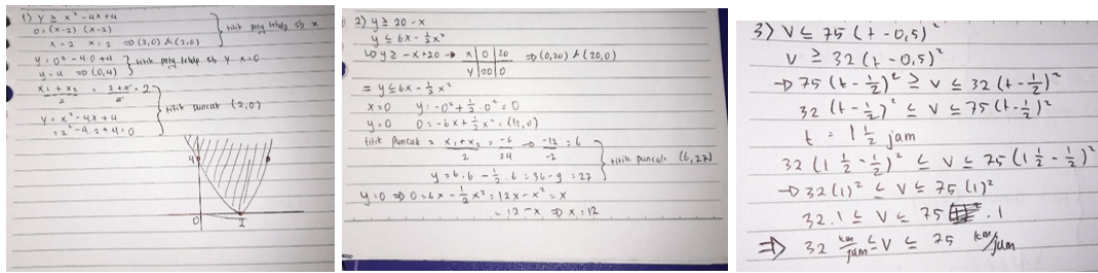 1) y ≥ x² - 4x + 4
0 = (x-2) (x-2)
x = 2 x = 2 ⇒ (2,0) & (2,0)
titik potg trhdp sb x
y = 0² - 4.0 + 4
y = 4 ⇒ (0,4)
titik potg trhdp sb y x=0
x₁ + x₂ / 2 = 2
y = x² - 4x + 4
= 2² - 4.2 + 4 = 0
titik puncak (2,0)
4
0
2
2) y ≥ 20 - x
y ≤ 6x - ½x²
y ≥ -x + 20 → x | 0 | 20 ⇒ (0,20) & (20,0)
y | 20 | 0
= y ≤ 6x - ½x²
x=0 y = -0² + ½ . 0² = 0
y=0 0 = -6x + ½x² =
titik puncak = x₁ + x₂ / 2 = -12 / -2 = 6
y = 6.6 - ½ . 6 = 36 - 9 = 27
titik puncak (6,27)
y=0 ⇒ 0 = 6x - ½x² = 12x - x² = x
= 12 - x ⇒ x = 12
3) V ≤ 75 (t - 0,5)²
V ≥ 32 (t - 0,5)²
→ 75 (t - ½)² ≥ V ≤ 32 (t - ½)²
32 (t - ½)² ≤ V ≤ 75 (t - ½)²
t = 1 ½ jam
32 (1 ½ - ½)² ≤ V ≤ 75 (1 ½ - ½)²
→ 32 (1)² ≤ V ≤ 75 (1)²
32 . 1 ≤ V ≤ 75 . 1
⇒ 32 km/jam ≤ V ≤ 75 km/jam